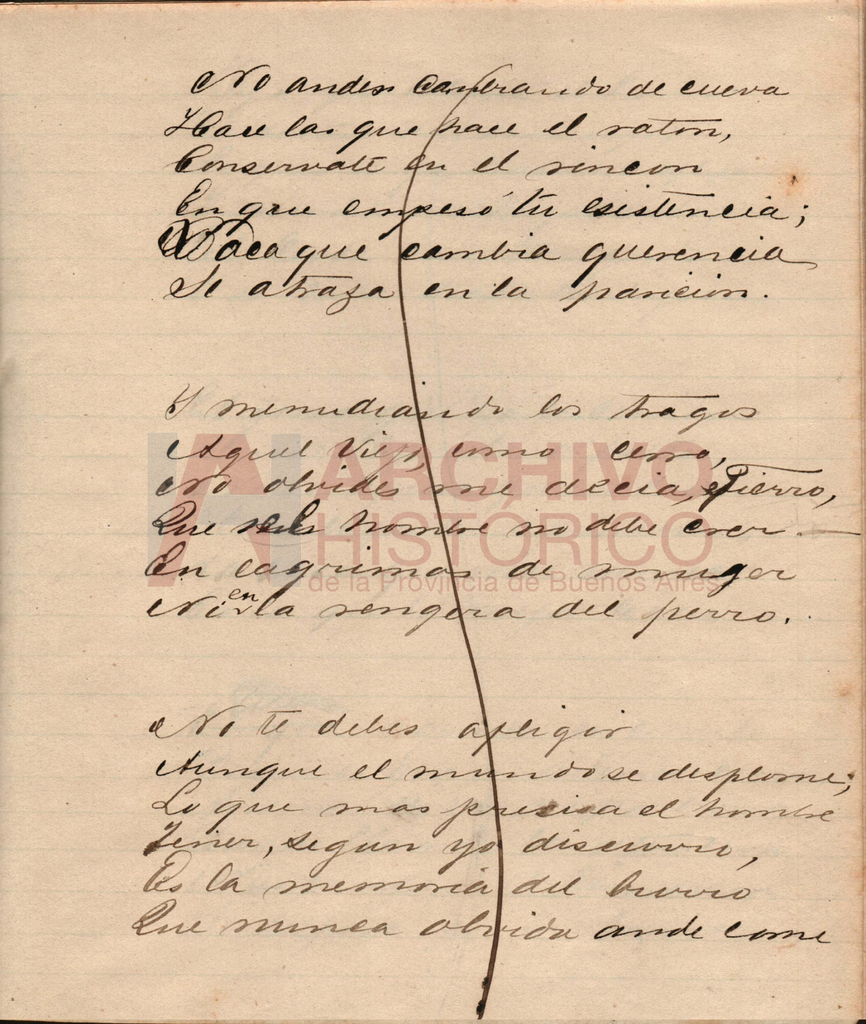 No andes cambiando de cueva
Hace las que hace el raton,
Conservate en el rincon
En que empesó tu esistencia;
Vaca que cambia querencia
Se atraza en la paricion.
Y menudiando los tragos
Aquel viejo, como cerro,
No olvides, me decia, Fierro,
Que el hombre no debe crer
En lagrimas de muger
Ni en la rengera del perro.
No te debes afligir
Aunque el mundo se desplome;
Lo que mas precisa el hombre
Tener, segun yo discurro,
Es la memoria del burro
Que nunca olvida ande come
ARCHIVO
HISTÓRICO
de la Provincia de Buenos Aires